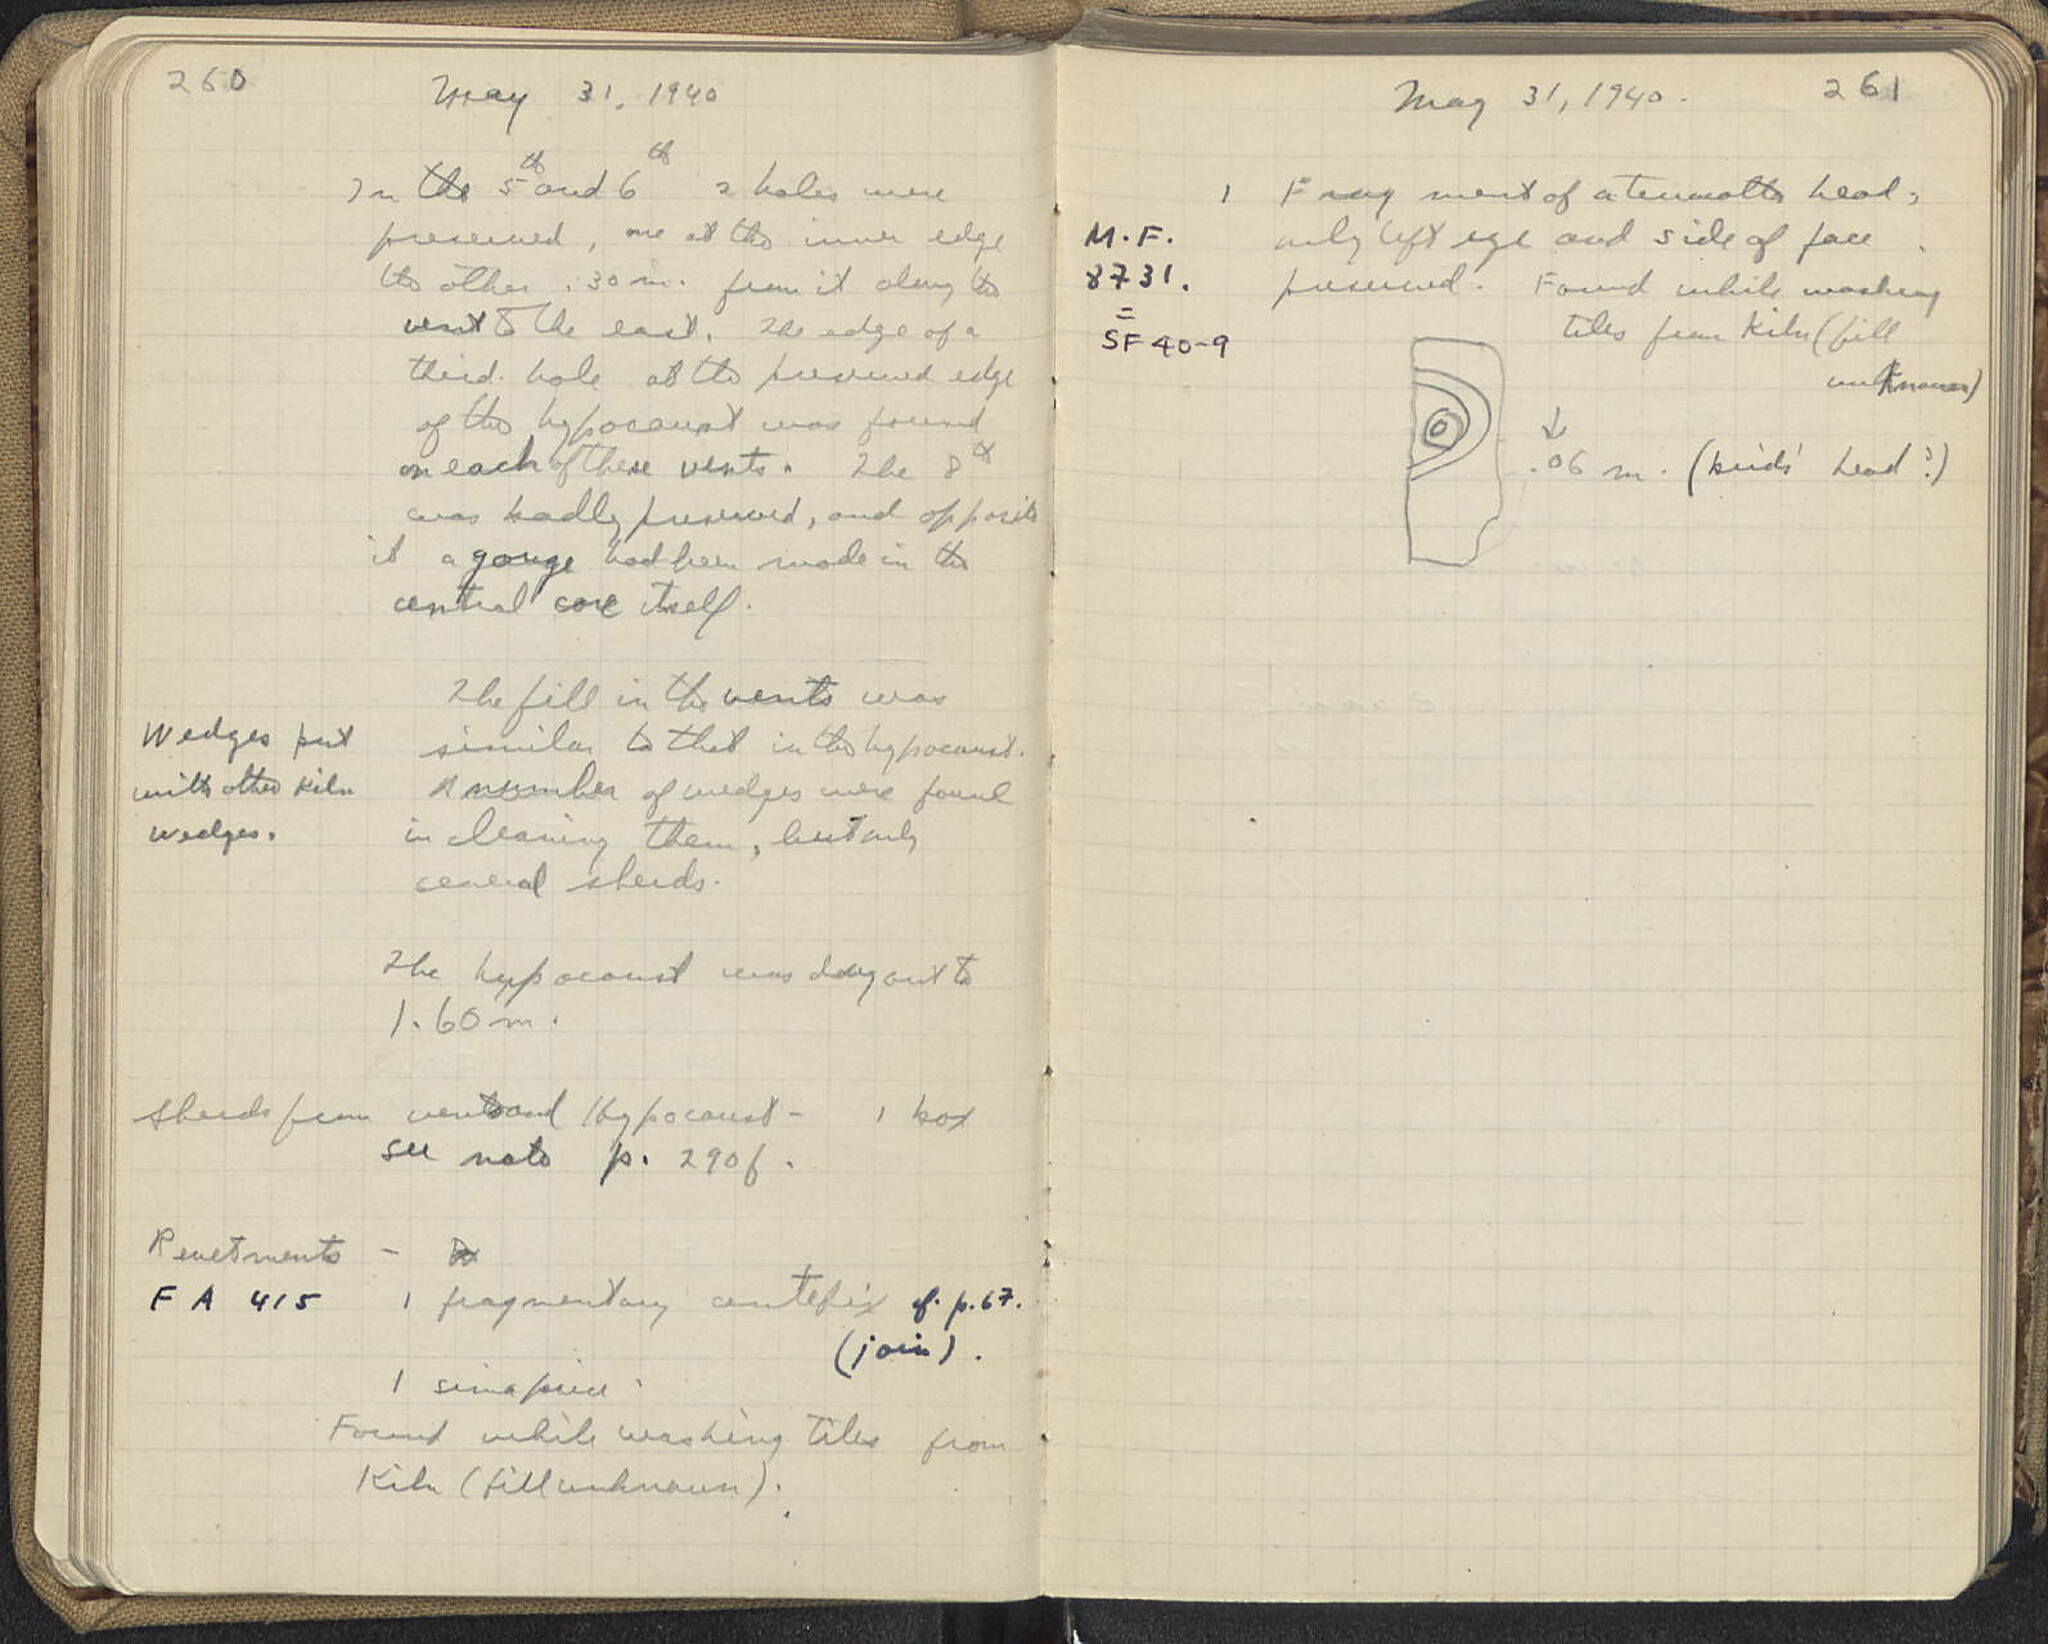 260
May 31, 1940
In the 5th and 6th 2 holes were
preserved, one at the inner edge
the other .30 m. from it along the
vent to the east. The edge of a
third hole at the preserved edge
of the hypocaust was found
on each of these vents. The 8th
was badly preserved, and opposite
it a gouge had been made in the
central core itself.
The fill in the vents was
similar to that in the hypocaust.
A number of wedges were found
in cleaning them, but only
several sherds.
Wedges put
with other kiln
wedges.
The hypocaust was dug out to
1.60 m.
Sherds from vents and Hypocaust - 1 box
see note p. 290f.
Revetments -
FA 415 1 fragmentary antefix cf. p. 67.
(join).
1 sima piece.
Found while washing tiles from
Kiln (fill unknown).
May 31, 1940.
261
1 Fragment of a terracotta head;
only left eye and side of face
preserved. Found while washing
tiles from Kiln (fill
unknown)
M.F.
8731.
=
SF 40-9
↓
.06 m. (bird's head?)